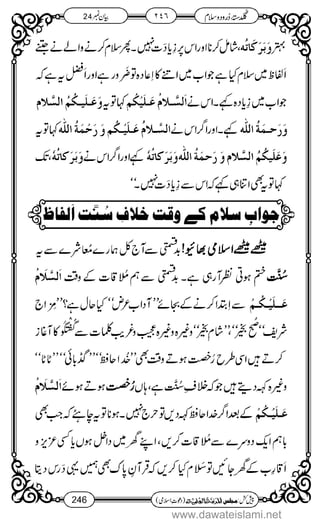 بیان نمبر 24 ۲۴۶ گلدستۂ دُرود و سلام
بہتر وَبَرَکاتُہٗ شامل کرنا، اور اس پر زیادَت نہیں۔ پھر سلام کرنے والے نے جتنے
اَلفاظ میں سلام کیا ہے جواب میں اتنے کا اِعادہ تو ضَرور ہے اور افضل یہ ہے کہ
جواب میں زیادہ کہے۔ اس نے اَلسَّلامُ عَلَیْکُمْ کہا تو یہ وَعَلَیْکُمُ السَّلام
وَرَحْمَۃُ اللّٰہ کہے۔ اور اگر اس نے اَلسَّلامُ عَلَیْکُم وَ رَحْمَۃُ اللّٰہ کہا تو یہ
وَعَلَیْکُمُ السَّلام وَ رَحْمَۃُ اللّٰہِ وَبَرَکاتُہٗ کہے اور اگر اس نے وَبَرَکاتُہٗ تک
کہا تو یہ بھی اتنا ہی کہے کہ اس سے زِیادَت نہیں۔‘‘
جوابِ سلام کے وقت خلافِ سُنَّت اَلفاظ
میٹھے میٹھے اسلامی بھائیو! بدقسمتی سے آج کل ہمارے مُعاشَرے سے یہ
سُنَّت ختم ہوتی نظر آرہی ہے۔ بدقسمتی سے ہم مُلاقات کے وقت اَلسَّلامُ
عَلَیْکُمْ سے اِبتدا کرنے کے بجائے ’’آداب عرض‘‘ ’’کیا حال ہے؟‘‘ ’’مزاج
شریف‘‘ ’’صُبح بخیر‘‘، ’’شام بخیر‘‘ وغیرہ وغیرہ عجیب وغریب کلمات سے گُفْتگُو کا آغاز
کرتے ہیں اسی طرح رُخصت ہوتے وَقْت بھی ’’خدا حافظ‘‘ ’’گڈ بائی‘‘ ’’ٹاٹا‘‘
وغیرہ کہہ دیتے ہیں جو کہ خلافِ سُنَّت ہے، ہاں رُخصت ہوتے ہوئے اَلسَّلامُ
عَلَیْکُمْ کے بعد اگر خدا حافظ کہہ دیں تو حرج نہیں۔ ہونا تو یہ چاہئے کہ جب بھی
باہم ایک دوسرے سے مُلاقات کریں، اپنے گھر میں داخل ہوں یا کسی عزیز و
اَقارِب کے گھر جائیں تو سلام کیا کریں کہ قرآنِ پاک بھی ہمیں یہی دَرس دیتا
246 مجلس المدینۃ العلمیۃ (دعوتِ اسلامی)
www.dawateislami.net